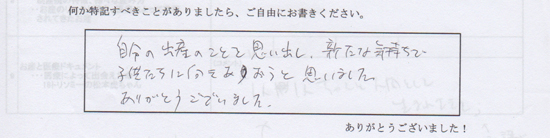 何か特記すべきことがありましたら、ご自由にお書きください。
自分の出産のことを思い出し、新たな気持ちで
子供たちに向きあおうと思いました。
ありがとうございました。
ありがとうございました！